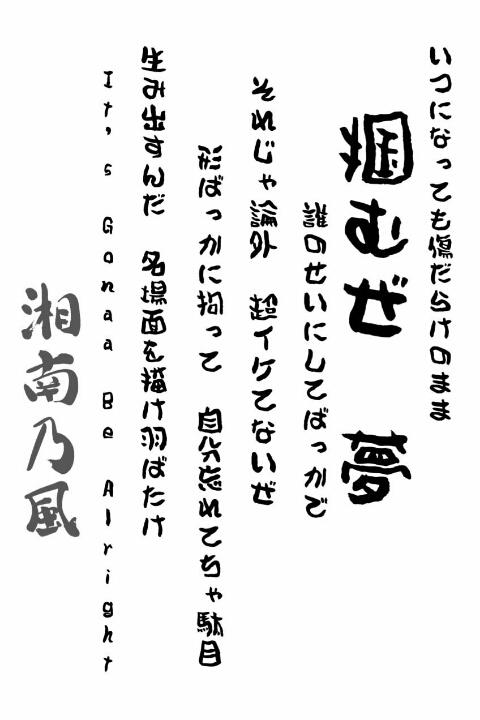 いつになっても傷だらけのまま
掴むぜ 夢
誰のせいにしてばっかで
それじゃ論外 超イケてないぜ
形ばっかに拘って 自分忘れてちゃ駄目
生み出すんだ 名場面を描け羽ばたけ
It's Gonaa Be Alright
湘南乃風